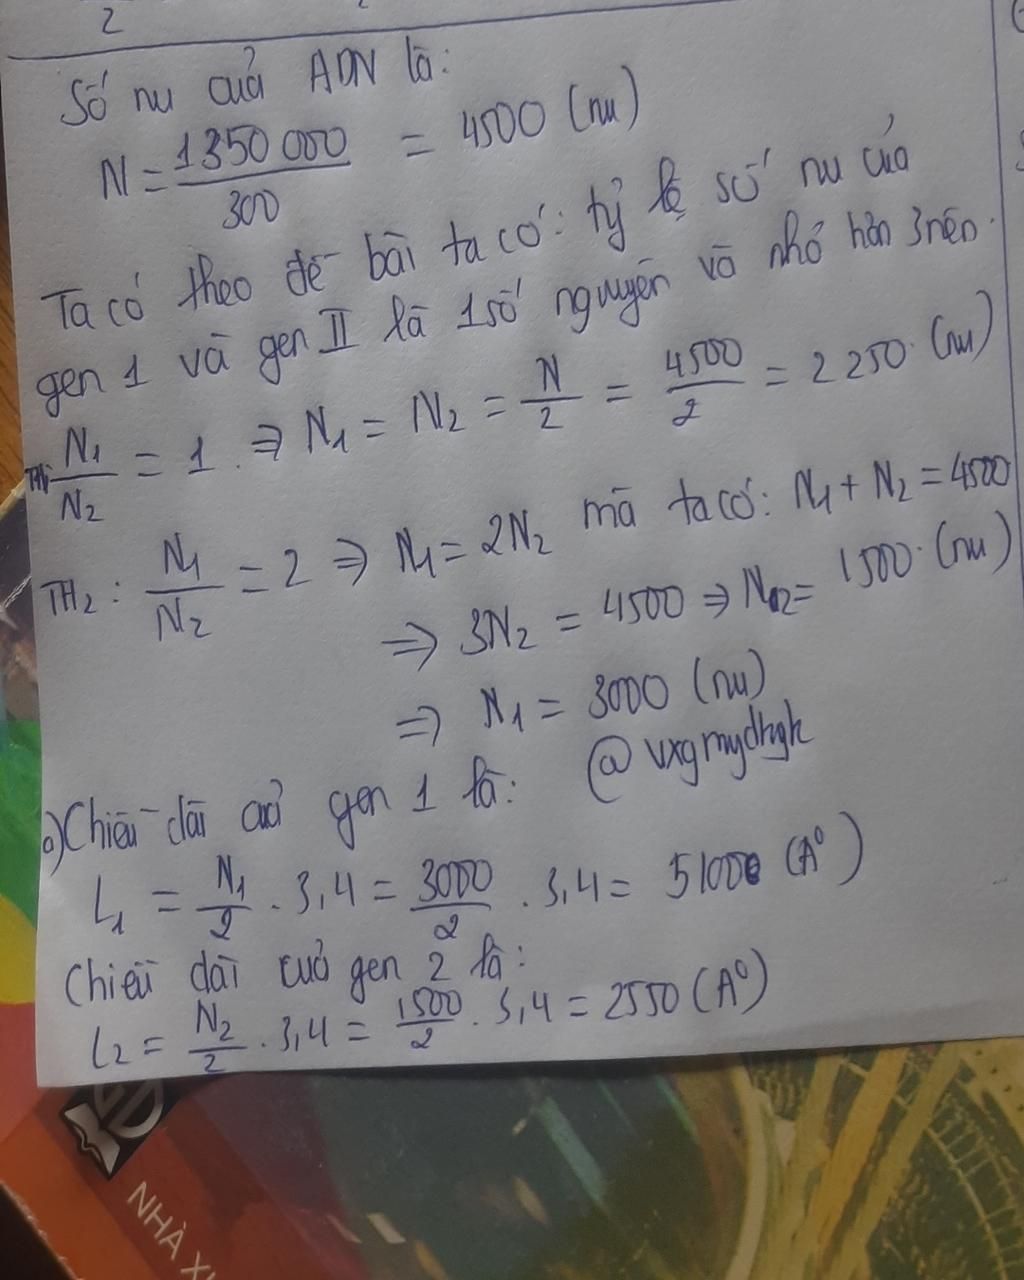 2
Số nu của ADN là:
N = 1350 000 / 300 = 4500 (nu)
Ta có theo đề bài ta có: tỷ lệ số nu của
gen 1 và gen II là 1 số nguyên và nhỏ hơn 3 nên.
TH1: N1/N2 = 1. ⇒ N1 = N2 = N/2 = 4500/2 = 2 250. (nu)
TH2: N1/N2 = 2 ⇒ N1 = 2N2 mà ta có: N1 + N2 = 4500
⇒ 3N2 = 4500 ⇒ N2 = 1500. (nu)
⇒ N1 = 3000 (nu)
@vxgmydhgk
a) Chiều dài của gen 1 là:
L1 = N1/2 . 3,4 = 3000/2 . 3,4 = 5100 (A⁰)
Chiều dài của gen 2 là:
L2 = N2/2 . 3,4 = 1500/2 . 3,4 = 2550 (A⁰)
NHÀ X